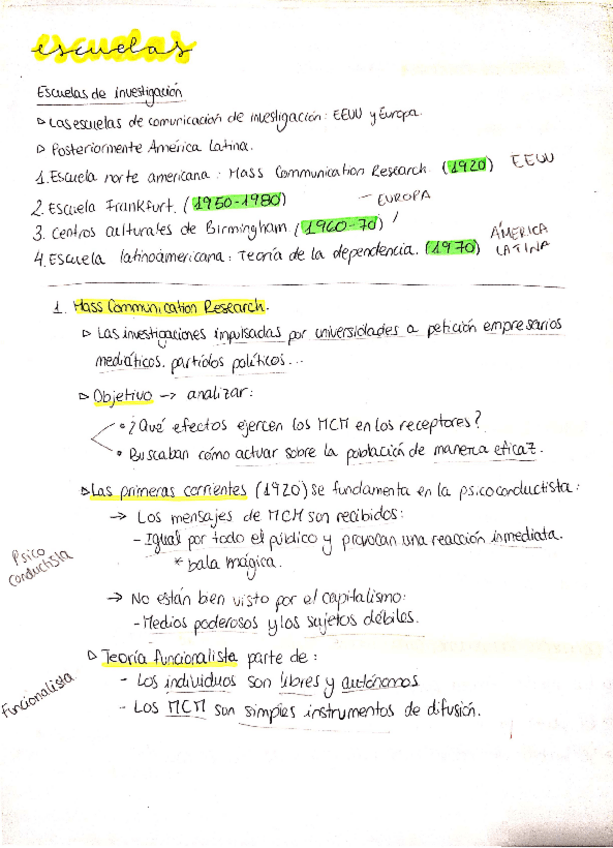 escuelas
Escuelas de investigación
▷ Las escuelas de comunicación de investigación: EEUU y Europa.
▷ Posteriormente América Latina.
1. Escuela norte americana: Mass Communication Research. (1920) EEUU
2. Escuela Frankfurt. (1950-1980) — EUROPA
3. Centros culturales de Birmingham (1960-70) /
4. Escuela latinoamericana: Teoría de la dependencia. (1970) ÁMERICA LATINA
1. Mass Communication Research.
▷ Las investigaciones impulsadas por universidades a petición empresarios
mediáticos. partidos políticos...
▷ Objetivo → analizar:
• ¿Qué efectos ejercen los MCM en los receptores?
• Buscaban cómo actuar sobre la población de manera eficaz.
▷ Las primeras corrientes (1920) se fundamenta en la psicoconductista:
→ Los mensajes de MCM son recibidos:
- Igual por todo el público y provocan una reacción inmediata.
* bala mágica.
Psico
conductista
→ No están bien visto por el capitalismo:
- Medios poderosos y los sujetos débiles.
▷ Teoría funcionalista parte de:
- Los individuos son libres y autónomos
Funcionalista
- Los MCM son simples instrumentos de difusión.